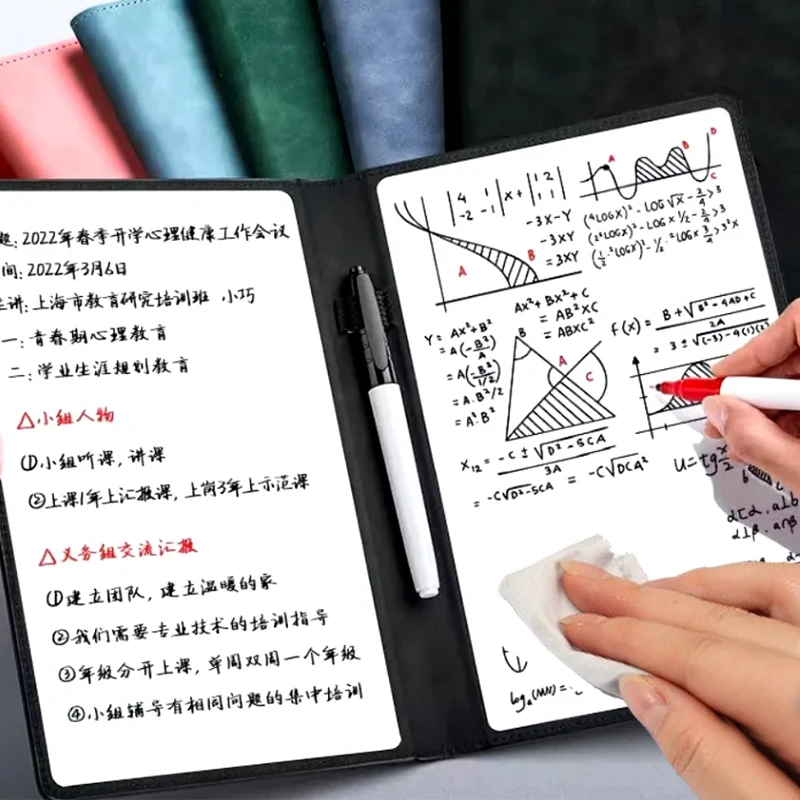 题: 2022年春季开学心理健康工作会议
间: 2022年3月6日
主讲: 上海市教育研究培训班 小巧
一: 青春期心理教育
二: 学业生涯规划教育
△小组人物
①小组听课, 讲课
②上课1年上汇报课, 上岗3年上示范课
△义务组交流汇报
①建立团队, 建立温暖的家
②我们需要专业技术的培训指导
③年级分开上课, 单周双周一个年级
④小组辅导有相同问题的集中培训
|4 1| x + |1 2|
|-2 -1| |1 1|
-3X-Y
-3XY
= 3XY
A
B
A
B
C
D
(⁴LOGX)² - LOG√X - 3/4 > 3
(²LOGX)² - LOGX 1/2 - 3/4 > 3
(1/2·²LOGX)² - 1/2·²LOGX 3/4 > 3²X
AX² + BX² + C
= ABXC
= ABXC²
Y = AX² + B²
= A(-B²/A)
= A(-B²/1/2)
= A·B²/2
= A²·B²
B
A
C
f(x) = B + √B² - 4AD + C / 2A
= 3 ± √(-3) - 4(1)(2)
X₁₂ = -C ± √D² - 5CA / 3A
= -C√D² - 5CA = -C√DCA²
U = tg x/2
α⊂α, a⊥b
α⊥β, a∩β
logₐ(MN) =